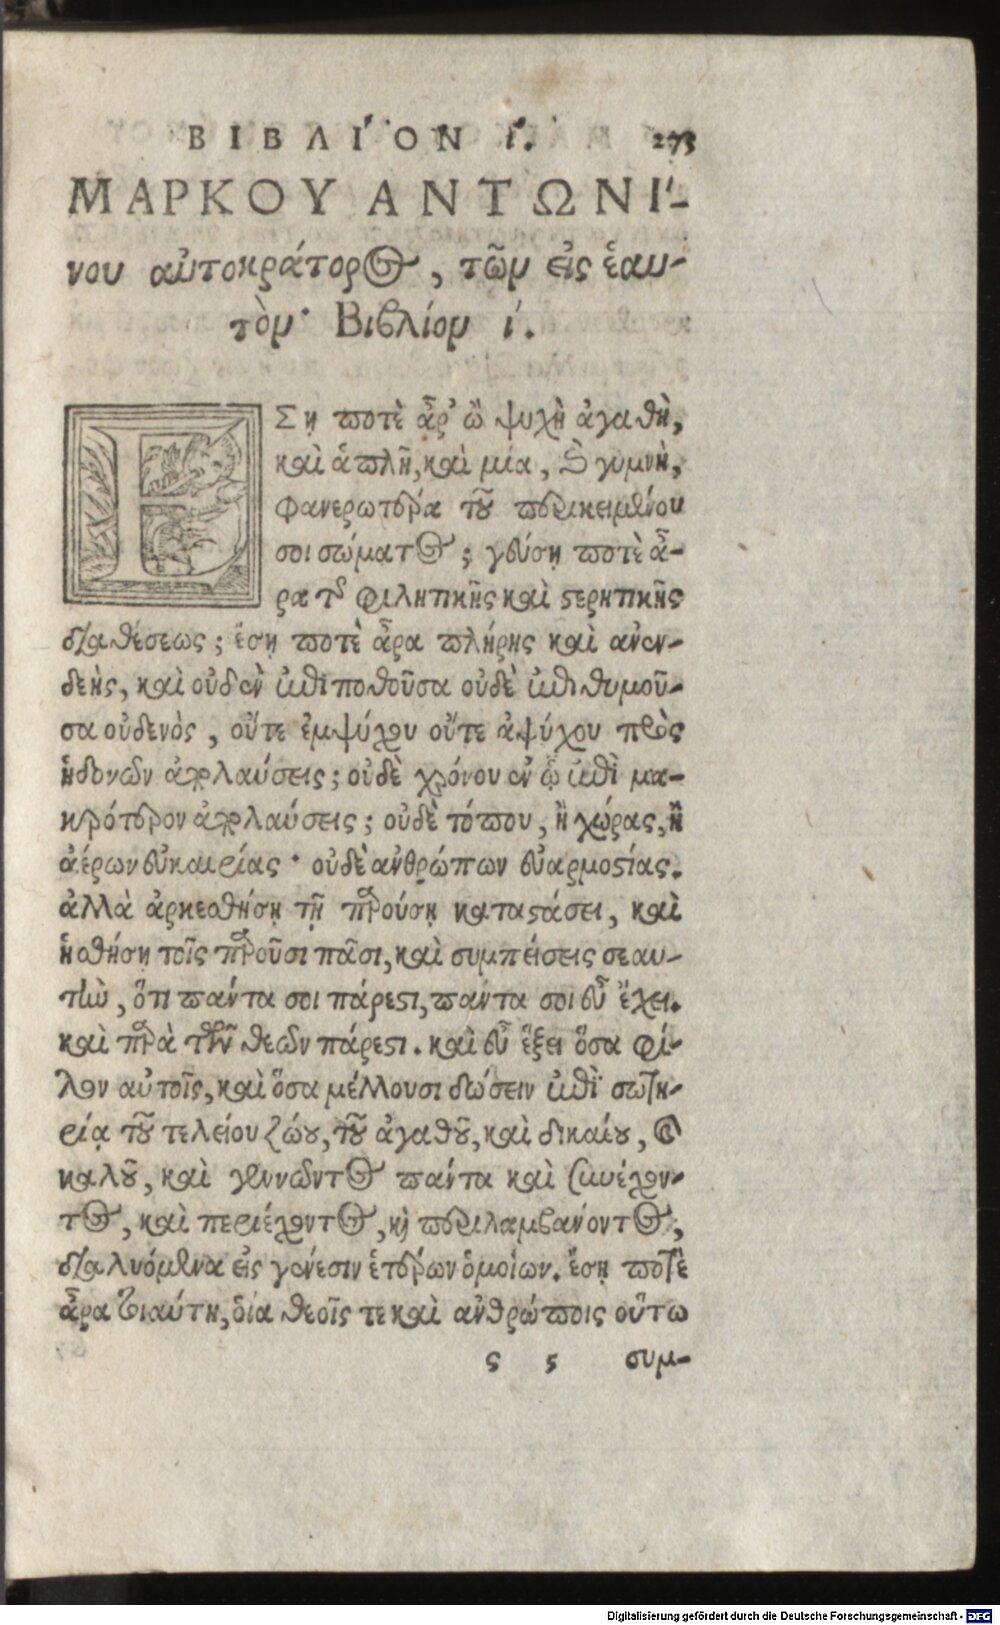 ΒΙΒΛΙ΄ΟΝ ί. 273
ΜΑΡΚΟΥ ΑΝΤΩΝΙ΄-
νου αὐτοκράτορος, τῶν εἰς ἑαυ-
τὸν· Βιβλίον ί.
ΕΣῃ ποτὲ ἆρ' ὦ ψυχὴ ἀγαθὴ,
καὶ ἁπλῆ, καὶ μία, καὶ γυμνὴ,
φανερωτέρα τοῦ περικειμένου
σοι σώματος; γεύσῃ ποτὲ ἆ-
ρα τῆς φιλητικῆς καὶ στερητικῆς
διαθέσεως; ἔσῃ ποτὲ ἆρα πλήρης καὶ ἀνεν-
δεὴς, καὶ οὐδὲν ἐπιποθοῦσα οὐδὲ ἐπιθυμοῦ-
σα οὐδενὸς, οὔτε ἐμψύχου οὔτε ἀψύχου πρὸς
ἡδονῶν ἀπολαύσεις; οὐδὲ χρόνου ἐν ᾧ ἐπὶ μα-
κρότερον ἀπολαύσεις; οὐδὲ τόπου, ἢ χώρας, ἢ
ἀέρων εὐκαιρίας· οὐδὲ ἀνθρώπων εὐαρμοστίας.
ἀλλὰ ἀρκεσθήσῃ τῇ παρούσῃ καταστάσει, καὶ
ἡσθήσῃ τοῖς παροῦσι πᾶσι, καὶ συμπείσεις σεαυ-
τὴν, ὅτι πάντα σοι πάρεστι, πάντα σοι εὖ ἔχει.
καὶ παρὰ τῶν θεῶν πάρεστι. καὶ εὖ ἕξει ὅσα φί-
λον αὐτοῖς, καὶ ὅσα μέλλουσι δώσειν ἐπὶ σωτη-
ρίᾳ τοῦ τελείου ζώου, τοῦ ἀγαθοῦ, καὶ δικαίου, καὶ
καλοῦ, καὶ γεννῶντος πάντα καὶ συνέχον-
τος, καὶ περιέχοντος, καὶ περιλαμβάνοντος,
διαλυόμενα εἰς γένεσιν ἑτέρων ὁμοίων. ἔσῃ ποτὲ
ἆρα τοιαύτη, οἵα θεοῖς τε καὶ ἀνθρώποις οὕτω
ς 5 συμ-
Digitalisierung gefördert durch die Deutsche Forschungsgemeinschaft - DFG